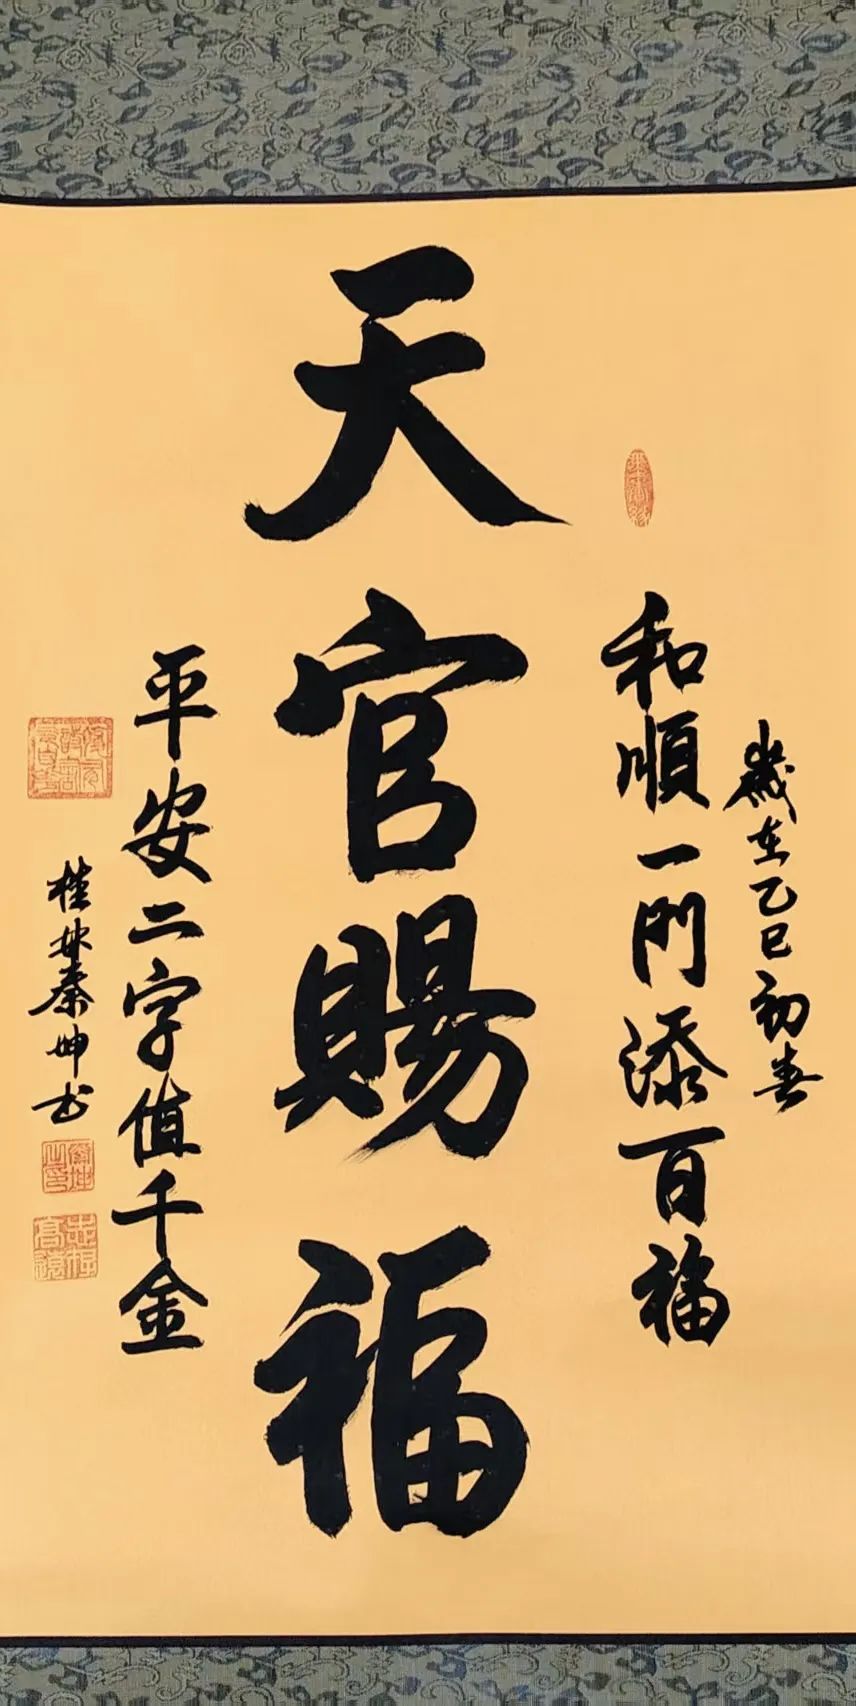 歲在乙巳初春
和順一門添百福
天官賜福
平安二字值千金
桂林秦坤书